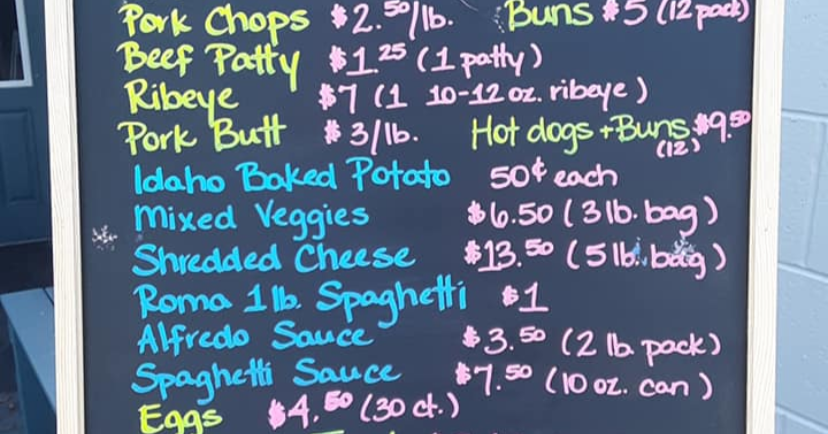 Pork Chops $2.50/lb. Buns $5 (12 pack)
Beef Patty $1.25 (1 patty)
Ribeye $7 (1 10-12 oz. ribeye)
Pork Butt $3/lb. Hot dogs + Buns $9.50
(12)
Idaho Baked Potato 50¢ each
Mixed Veggies $6.50 (3 lb. bag)
Shredded Cheese $13.50 (5 lb. bag)
Roma 1 lb. Spaghetti $1
Alfredo Sauce $3.50 (2 lb. pack)
Spaghetti Sauce $7.50 (10 oz. can)
Eggs $4.50 (30 ct.)